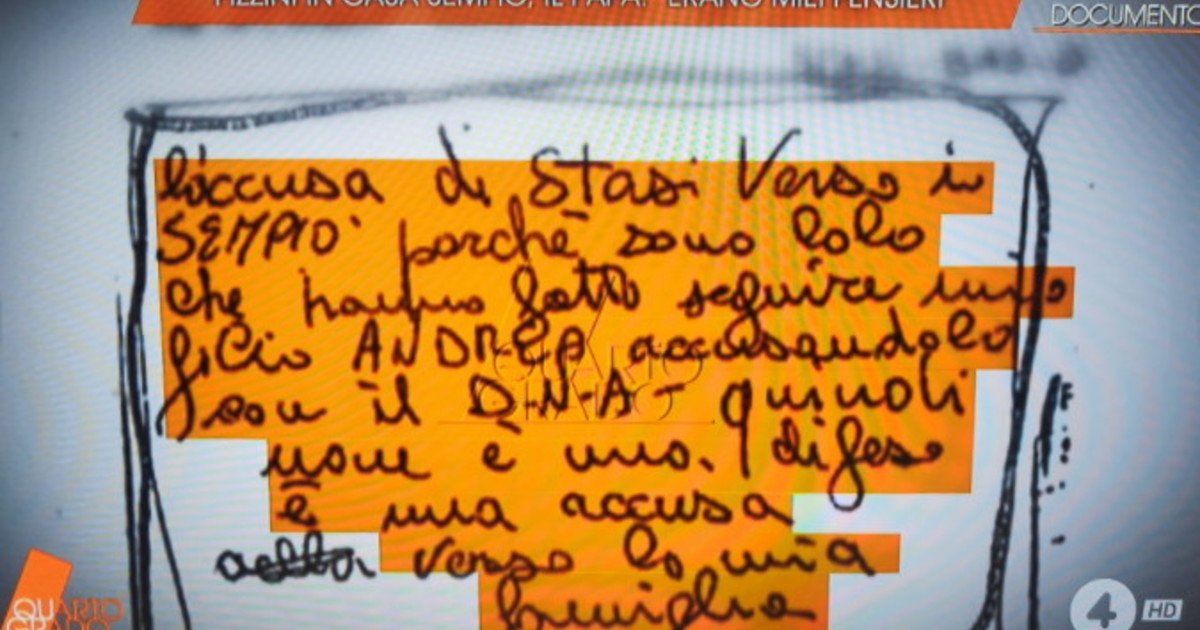 PIZZINI IN CASA SEMPIO, IL PAPÀ: "ERANO MIEI PENSIERI"
DOCUMENTO
l'accusa di Stasi Verso i
SEMPIO porchè sono loro
che hanno fatto seguire mio
figlio ANDREA accusandolo
con il D.N.A- quindi
non è una difesa
è una accusa
verso la mia
famiglia
QUARTO
GRADO
QUARTO
GRADO
4 HD